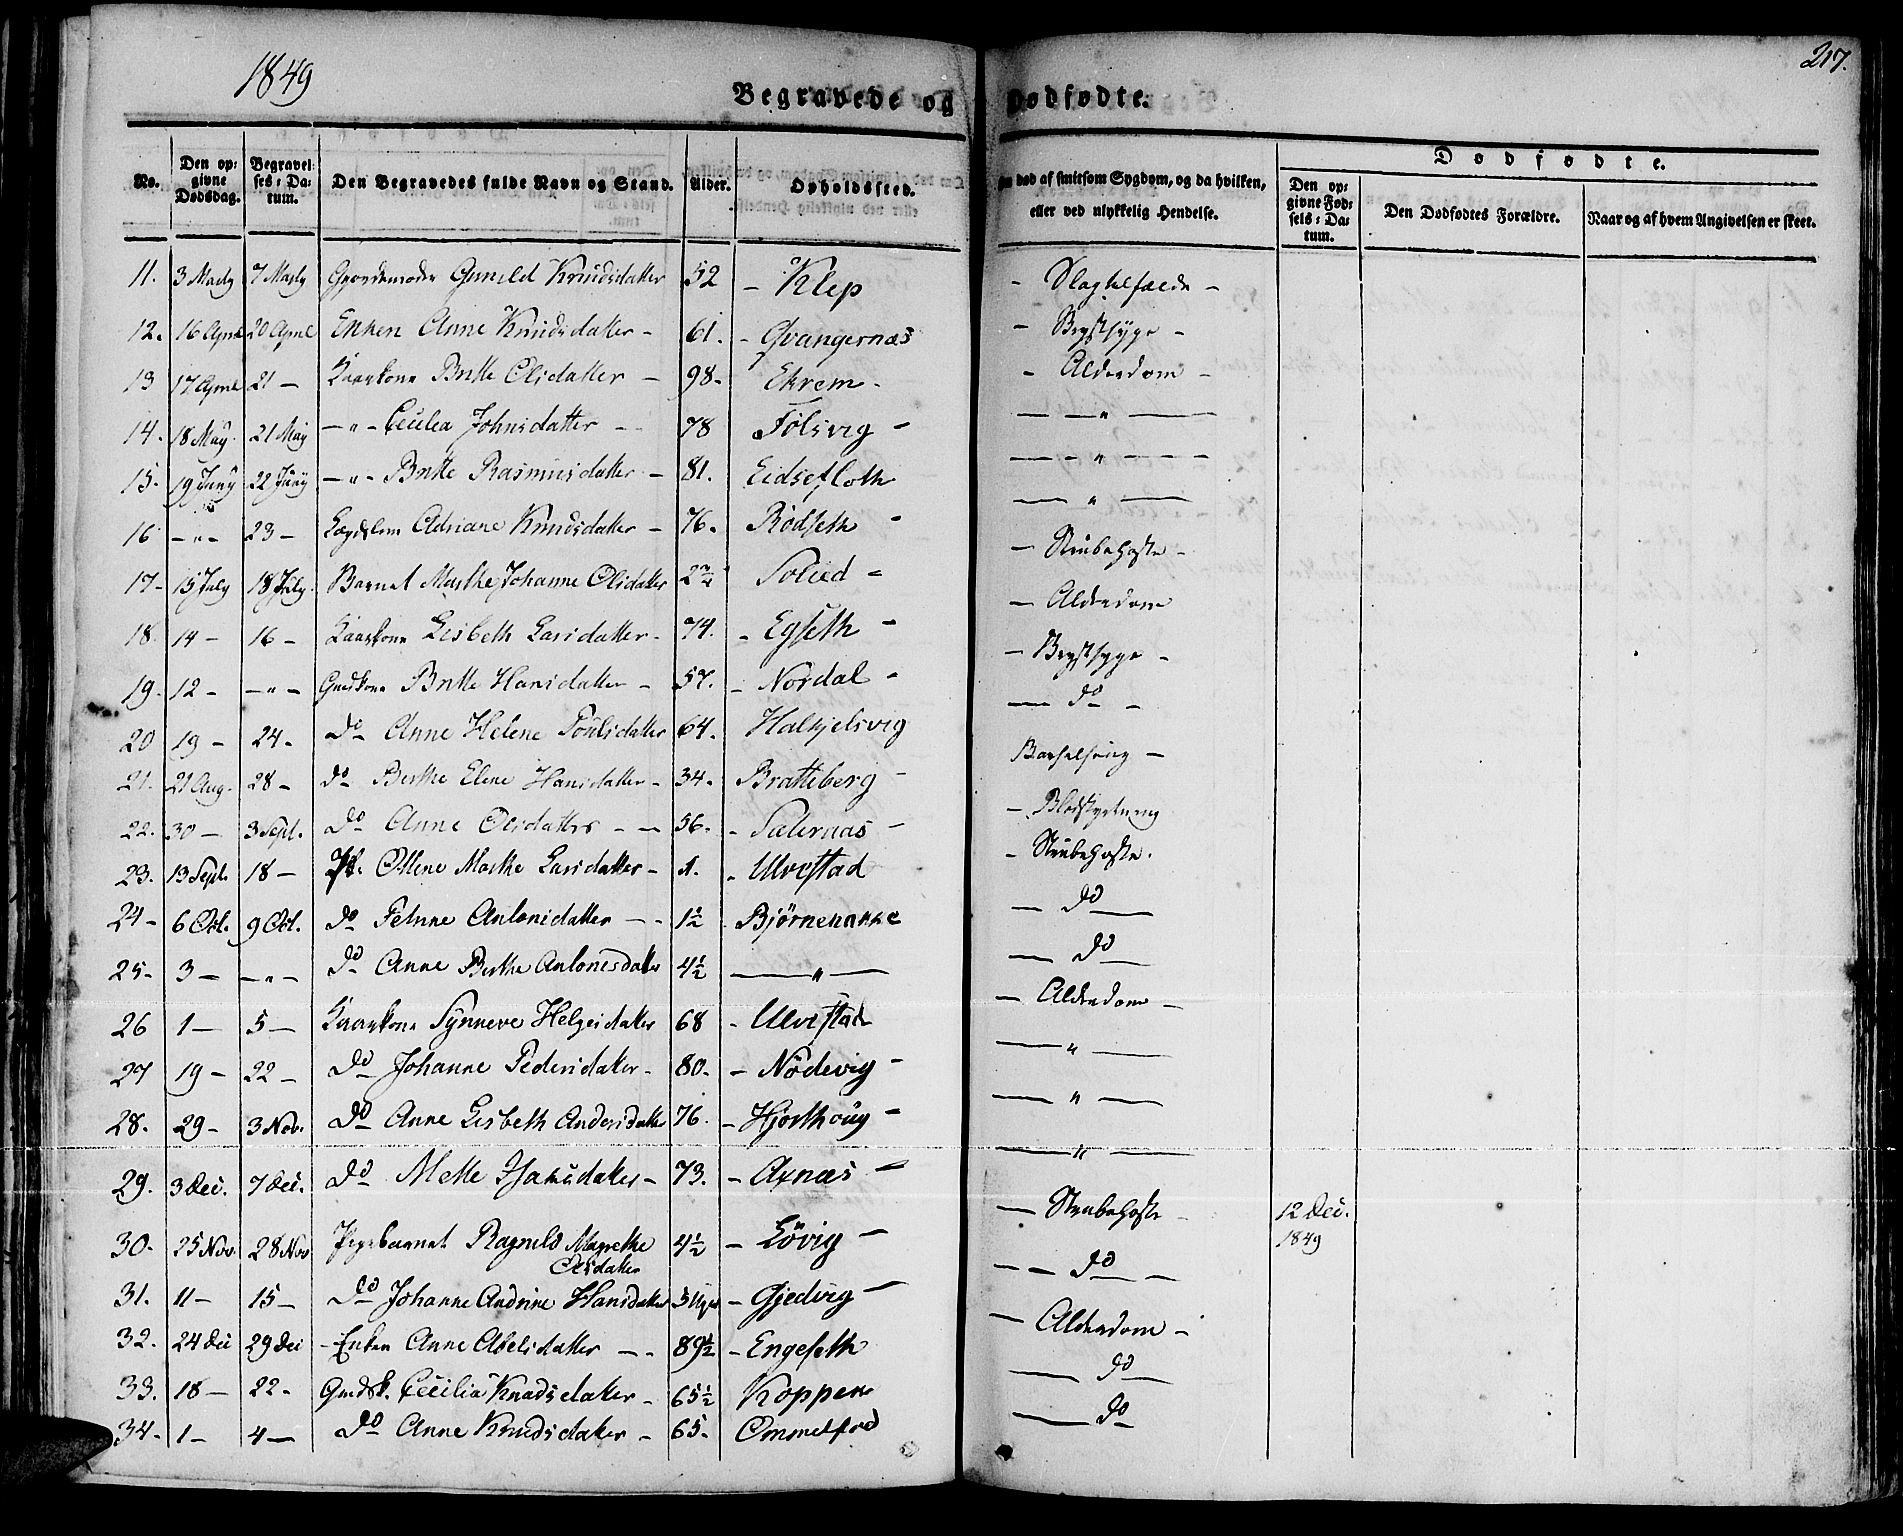 1849
217.
Begravede og Dødfødte.
No.
Den opgivne Dødsdag.
Begravelses-Datum.
Den Begravedes fulde Navn og Stand.
Alder.
Opholdssted.
død af smitsom Sygdom, og da hvilken, eller ved ulykkelig Hendelse.
Dødfødte.
Den opgivne Fødsels-Datum.
Den Dødfødtes Forældre.
Naar og af hvem Angivelsen er skeet.
11. 3 Marty 7 Marty Gunild Knudsdatter 52 - Klep - Slagtelfælde -
12. 16 April 20 April Enken Anne Knudsdatter - 61. - Qvangernæs - Brystsyge -
13 17 April 21 - Kaarkone Britte Olsdatter - 98. Ekrem - - Alderdom -
14. 18 May 21 May -"- Cecilea Johnsdatter - 78 Tolsvig - - " -
15. 19 Juny 22 Juny -"- Britte Rasmusdatter - 81. Eidsetloth - " -
16 -"- 23 - Lægdslem Adriane Knudsdatter - 76. Rödseth - - " -
17 - 15 July 18 July. Barnet Marthe Johanne Olsdatter 2¾ Solied - - Strubehoste -
18. 14 - 16 - Kaarkone Lisbeth Larsdatter - 74. - Egseth - - Alderdom
19. 12 - -"- Gmdkone Britte Hansdatter - 57. - Nordal - - Brystsyge -
20 19 - 24 - Do Anne Helene Poulsdatter 64. Halkjelsvig - do -
21. 21 Aug. 28 - do Berthe Elene Hansdatter - 34. Bratteberg - Barselseng -
22. 30 - 3 Sept. Do Anne Olsdatter - - 56. - Sæternæs - - Blodstyrtning
23. 13 Sept. 18 - Oline Marthe Larsdatter - 1. - Ulvestad - Strubehoste.
24 - 6 Oct. 9 Oct. do Antonsdatter - - 1½ - Björnenakke - do -
25 - 3 - -"- Do Anne Berthe Antonesdatter 4½ - " - - do -
26 1 - 5 - Kaarkone Synneve Helgesdatter 68 - Ulvestad - Alderdom -
27 19 - 22 - Do Johanne Pedersdatter - 80. - Nödevig - - " -
28. 29 - 3 Nov. Do Anne Lisbeth Andersdatter 76. - Hjorthoug - - " -
29. 3 Dec. 7 Dec. Do Mette Hansdatter - 73. - Axnæs - - " -
30. 25 Nov. 28 Nov Pigebarnet Ragnild Magrethe Olsdatter 4½ - Lövig - - Strubehoste - 12 Dec. 1849
31. 11 - 15 - Do Johanne Andrine Hansdatter 3 Uger - Gjedvig - - - do -
32. 24 Dec 29 Dec - Enken Anne Abelsdatter - - 89½ - Engeseth - Alderdom -
33. 18 - 22 - Gmdsk. Cecilia Knudsdatter - 65½ - Koppen - do -
34. 1 - 4 - Do Anne Knudsdatter - 65. Ommetfod - do